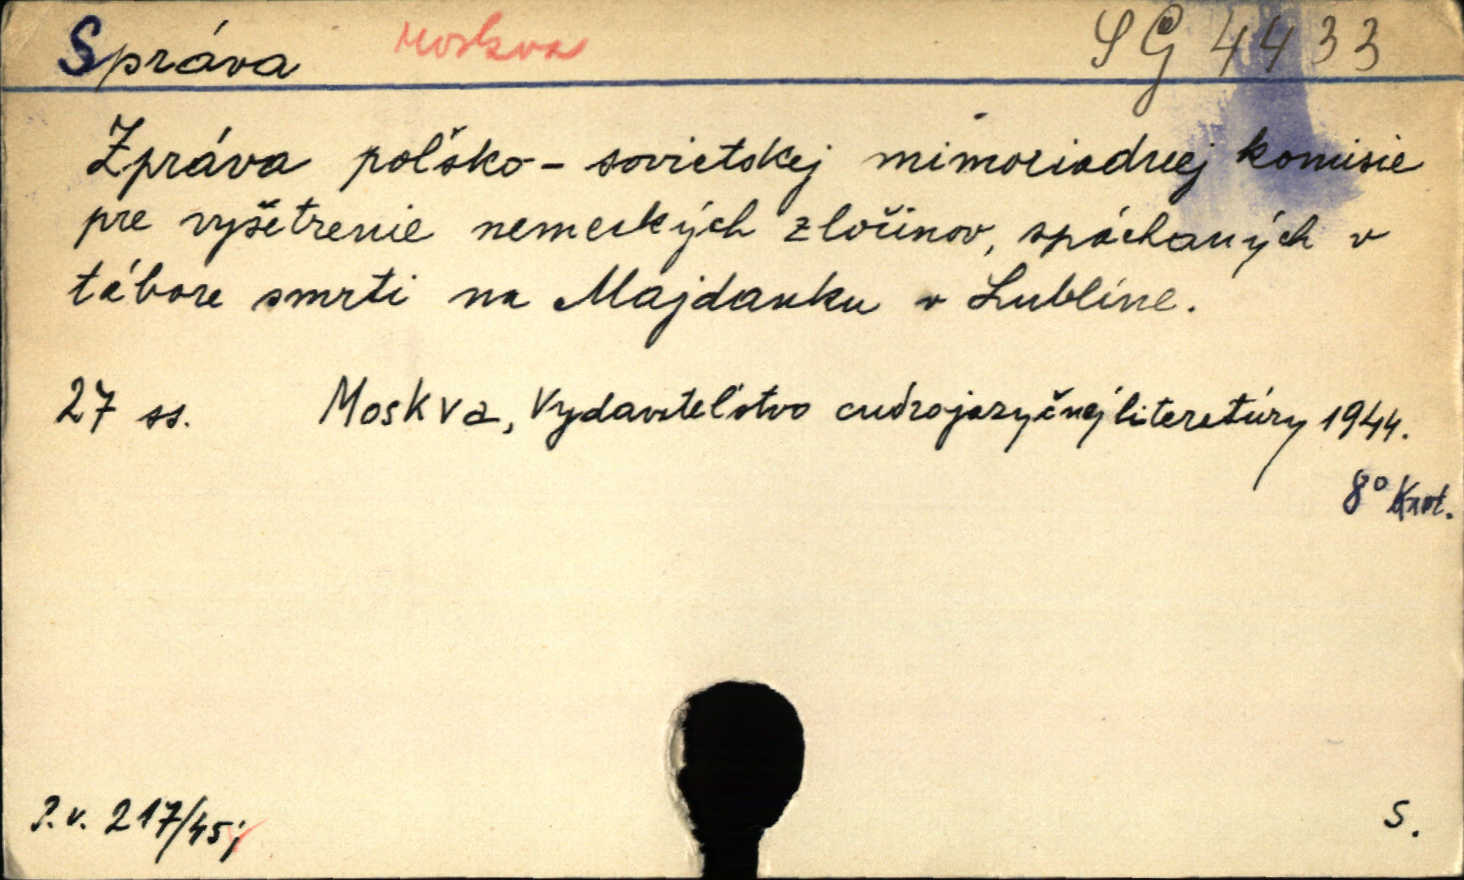 Správa Moskva SG 4433
Zpráva poľsko-sovietskej mimoriadnej komisie
pre vyšetrenie nemeckých zločinov, spáchaných v
tábore smrti na Majdanku v Lubline.
27 ss. Moskva, Vydavateľstvo cudzojazyčnej literatúry 1944.
8° Krot.
P.v. 217/45;
S.